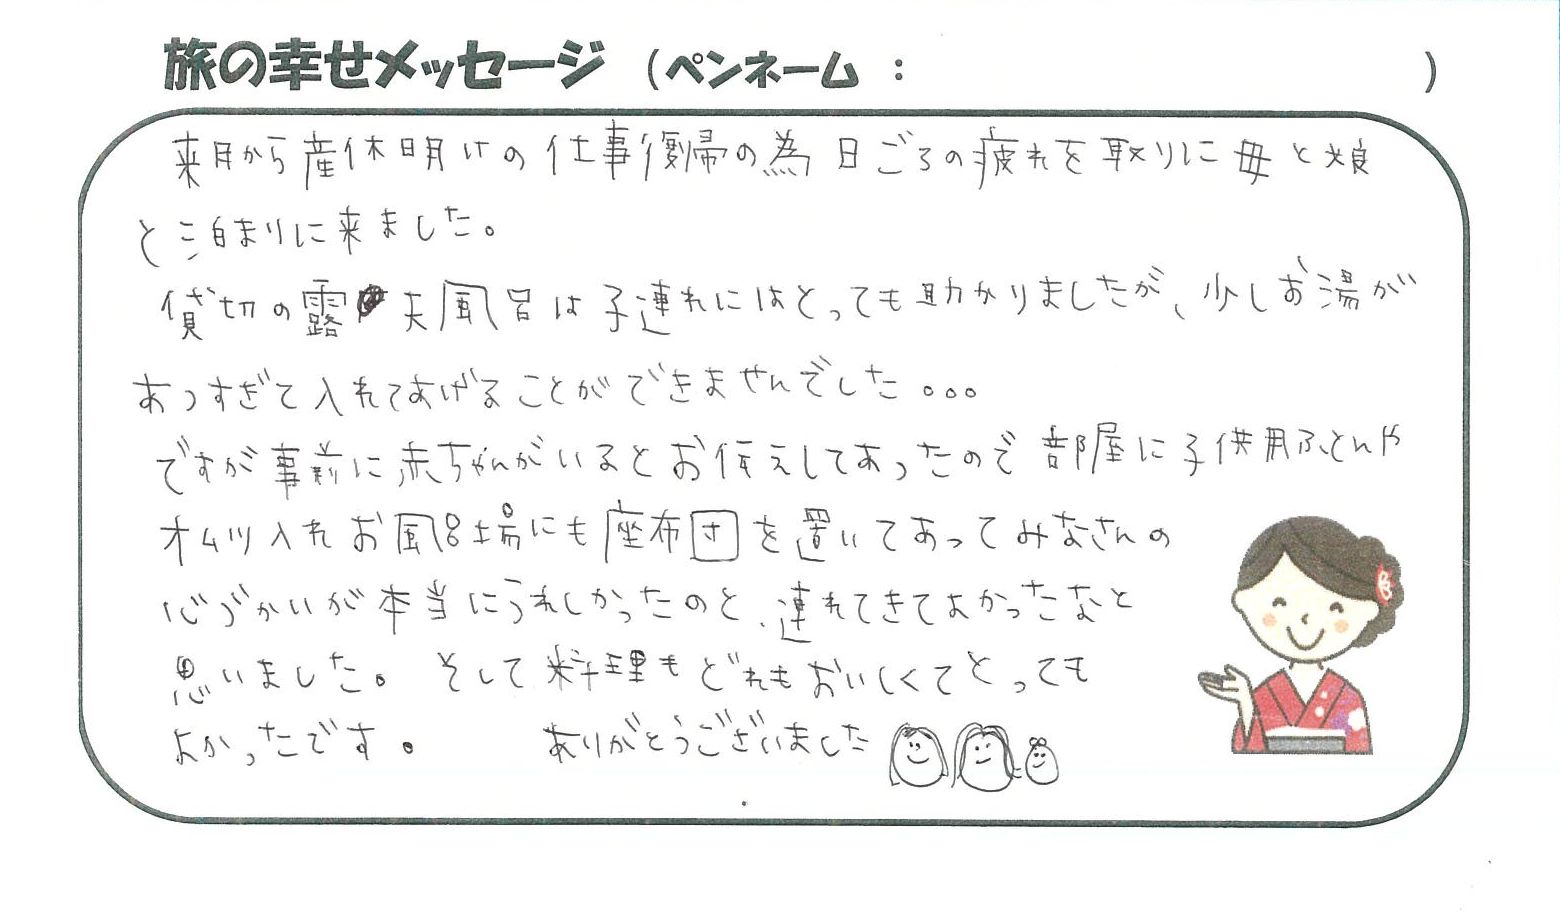 旅の幸せメッセージ （ペンネーム ： ）
来月から産休明けの仕事復帰の為 日ごろの疲れを取りに母と娘
と泊まりに来ました。
貸切の露天風呂は子連れにはとっても助かりましたが、少しお湯が
あつすぎて入れてあげることができませんでした。。。
ですが事前に赤ちゃんがいるとお伝えしてあったので部屋に子供用ふとんや
オムツ入れお風呂場にも座布団を置いてあってみなさんの
心づかいが本当にうれしかったのと、連れてきてよかったなと
思いました。 そして料理もどれもおいしくてとっても
よかったです。 ありがとうございました